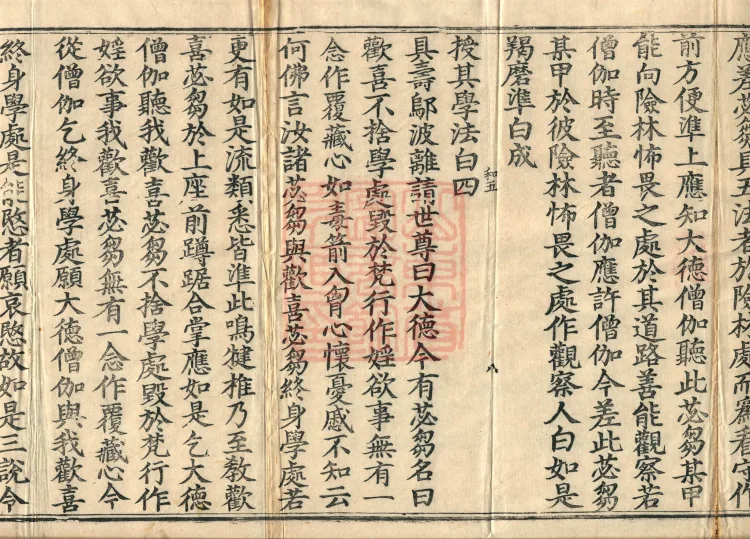 應差苾芻具五法者於險林處而
前方便準上應知大德僧伽聽此苾芻某甲
能向險林怖畏之處於其道路善能觀察若
僧伽時至聽者僧伽應許僧伽今差此苾芻
某甲於彼險林怖畏之處作觀察人白如是
羯磨準白成
和五 八
授其學法白四
具壽鄔波離請世尊曰大德今有苾芻名曰
歡喜不捨學處毀於梵行作婬欲事無有一
念作覆藏心如毒箭入胷心懷憂慼不知云
何佛言汝諸苾芻與歡喜苾芻終身學處若
更有如是流類悉皆準此鳴揵椎乃至教歡
喜苾芻於上座前蹲踞合掌應如是乞大德
僧伽聽我歡喜苾芻不捨學處毀於梵行作
婬欲事我歡喜苾芻無有一念作覆藏心今
從僧伽乞終身學處願大德僧伽與我歡喜
終身學處是能愍者願哀愍故如是三說令